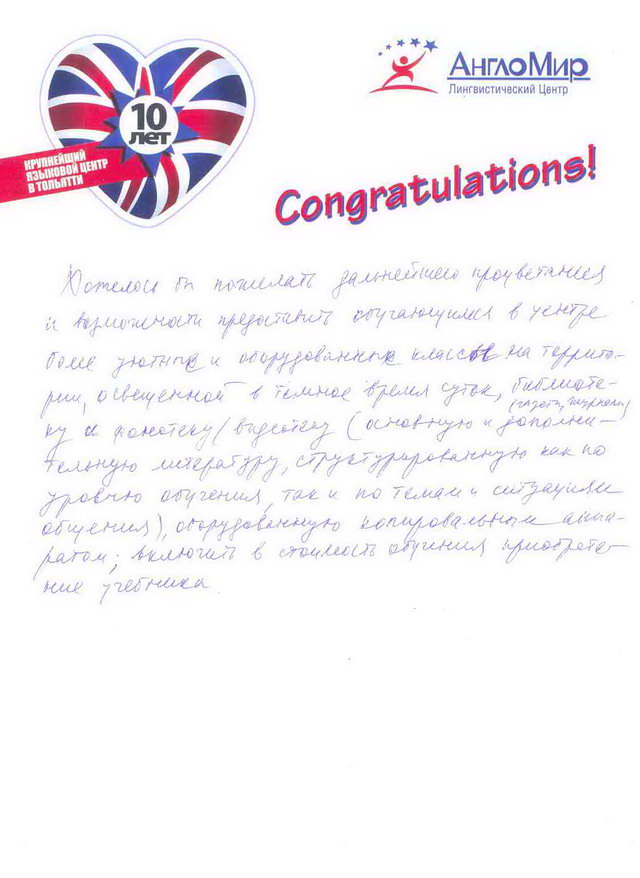 10
лет
КРУПНЕЙШИЙ
ЯЗЫКОВОЙ ЦЕНТР
В ТОЛЬЯТТИ
АнглоМир
Лингвистический Центр
Congratulations!
Хотелось бы пожелать дальнейшего процветания
и возможности предоставить обучающимся в центре
более уютных и оборудованных классов на террито-
рии, освещенной в темное время суток, библиоте-
(газеты, журналы)
ку и фонотеку/видеотеку (основную и дополни-
тельную литературу, структурированную как по
уровню обучения, так и по темам и ситуациям
общения), оборудованную копировальным аппа-
ратом; включить в стоимость обучения приобрете-
ние учебника